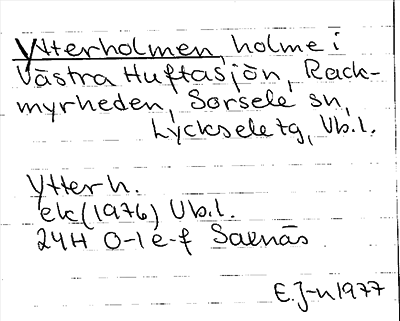 Ytterholmen, holme i
Västra Huftasjön, Rack-
myrheden, Sorsele sn,
Lycksele tg, Vb.l.
Ytterh.
ek (1976) Vb.l.
24H 0-1 e-f Saxnäs
E.J-n 1977